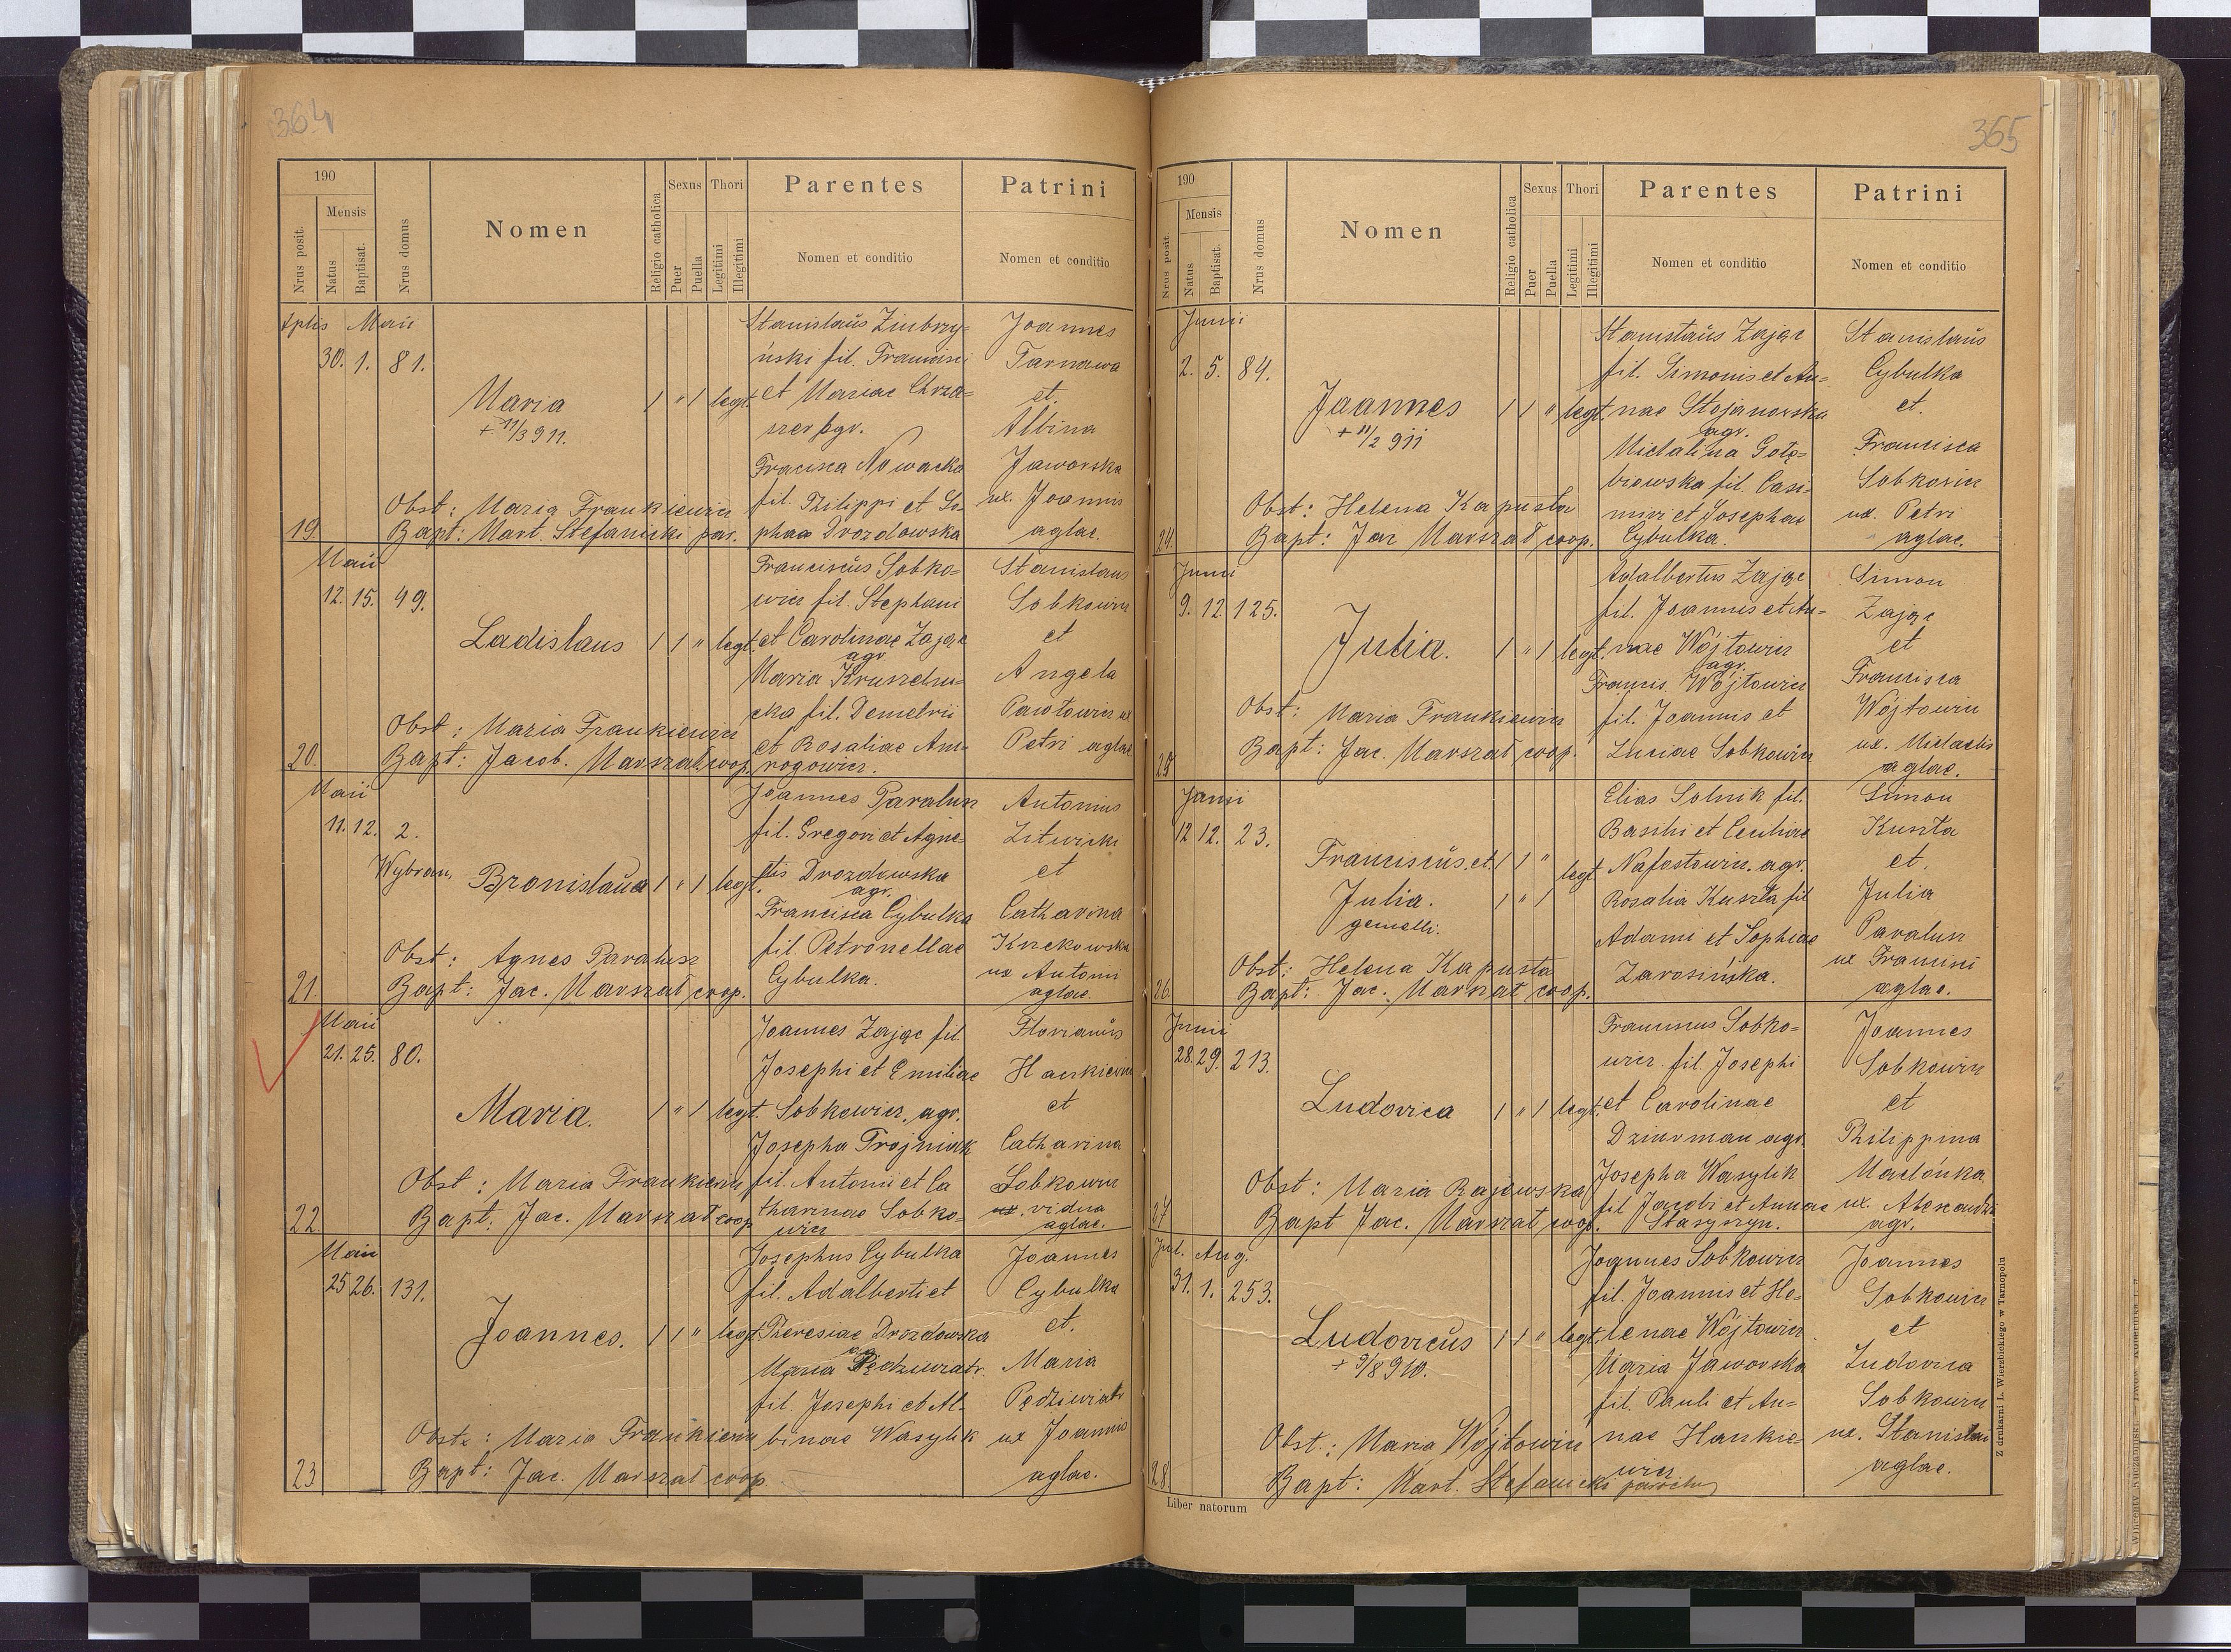 364
190
Nrus posit.
Mensis
Natus
Baptisat.
Nrus domus
Nomen
Religio catholica
Sexus
Puer
Puella
Thori
Legitimi
Illegitimi
Parentes
Nomen et conditio
Patrini
Nomen et conditio
Aplis Maii
30. 1. 81.
Maria
+ 11/3 911.
1 " 1 legt.
Obst: Maria Frankiewicz
Bapt: Mart. Stefanicki par.
19
ński fil. Francisci
et Mariae Chrza=
szcz agr.
Fracisca Nowacka
fil. Philippi et So=
phae Drozdowska
Joannes
Tarnawa
et.
Albina
Jaworska
ux. Joannis
aglae.
Maii
12. 15. 49.
Ladislaus
1 1 " legt.
Obst: Maria Frankiewicz
Bapt: Jacob. Marszał coop.
20.
Franciscus Sobko=
wicz fil. Stephani
et Carolinae Zając
agr.
cka fil. Demetrii
et Rosaliae Am=
rogowicz.
Stanislaus
Sobkowicz
et
Angela
Pawłowicz ux
Petri aglae
Maii
11. 12. 2.
Wybran.
Bronislaua
1 " 1 legt.
Obst: Agnes Paraluss
Bapt: Jac. Marszał coop.
21.
Joannes Paralusz
fil. Gregorii et Agne=
tis Drozdowska
agr.
Francisca Cybulka
fil. Petronellae
Cybulka.
Antonius
Litwicki
et
Catharina
ux Antonii
aglae.
Maii
21. 25. 80.
Maria.
1 " 1 legt.
Obst: Maria Frankiewicz
Bapt: Jac. Marszał coop
22
Joannes Zając fil.
Josephi et Emiliae
Sobkowicz, agr.
Josepha Trojniak
fil. Antonii et Ca
tharinae Sobko=
wicz
Florianus
Hankiewicz
et
Catharina
Sobkowicz
ux. vidua
aglae.
Maii
25 26. 131.
Joannes.
1 1 " legt.
Obst: Maria Frankiewicz
Bapt: Jac. Marszał coop
23
Josephus Cybulka
fil. Adalberti et
Theresiae Drozdowska
Maria Pędziwiatr.
fil. Josephi et Al=
binae Wasylik
Joannes
Cybulka
et.
Maria
Pędziwiatr
ux Joannis
aglae.
365
190
Nrus posit.
Mensis
Natus
Baptisat.
Nrus domus
Nomen
Religio catholica
Sexus
Puer
Puella
Thori
Legitimi
Illegitimi
Parentes
Nomen et conditio
Patrini
Nomen et conditio
Junii
2. 5. 84.
Joannes
+ 11/2 911
1 1 " legt.
Obst: Helena Kapusta
Bapt: Jac Marszał coop.
24.
Stanislaus Zając
fil. Simonis et An=
nae Stojanowska
agr.
Michalina Gołę=
biowska fil. Casi=
miri et Josephae
Cybulka.
Stanislaus
Cybulka
et.
Francisca
Sobkowicz
ux. Petri
aglae.
Junii
9. 12. 125.
Julia.
1 " 1 legt.
Obst: Maria Frankiewicz
Bapt: Jac. Marszał coop.
25
Adalbertus Zając
fil. Joannis et An=
nae Wójtowicz
agr.
Francis. Wójtowicz
fil. Joannis et
Luciae Sobkowicz
Simon
Zając
et
Francisca
Wójtowicz
ux. Michaelis
aglae.
Junii
12 12. 23.
Franciscus. et.
1 1 "
legt
Julia.
1 " 1
gemelli.
Obst: Helena Kapusta
Bapt: Jac. Marszał coop.
26.
Elias Solnik fil.
Basilii et Ceciliae
agr.
Rosalia Kuszta fil
Adami et Sophiae
Zarosińska.
Simon
Kuszta
et.
Julia
Paralusz
ux Francisci
aglae.
Junii
28. 29. 213.
Ludovica
1 " 1 legt.
Obst: Maria Rajewska
Bapt Jac. Marszał coop.
27
Franciscus Sobko=
wicz fil. Josephi
et Carolinae
Dziurman agr.
Josepha Wasylik
fil Jacobi et Annae
Stasyszyn.
Joannes
Sobkowicz
et
Philippina
ux. Alexandri
agr.
Jul. Aug.
31. 1. 253.
Ludovicus
+ 9/8 910.
1 1 " legt.
Obst.: Maria Wójtowicz
Bapt: Mart. Stefanicki parochus
28.
Joannes Sobkowicz
fil. Joannis et He=
lenae Wójtowicz
Maria Jaworska
fil. Pauli et An=
nae Hankie=
wicz
Joannes
Sobkowicz
et
Ludovica
Sobkowicz
ux. Stanislai
aglae.
Liber natorum
Z drukarni L. Wierzbickiego w Tarnopolu